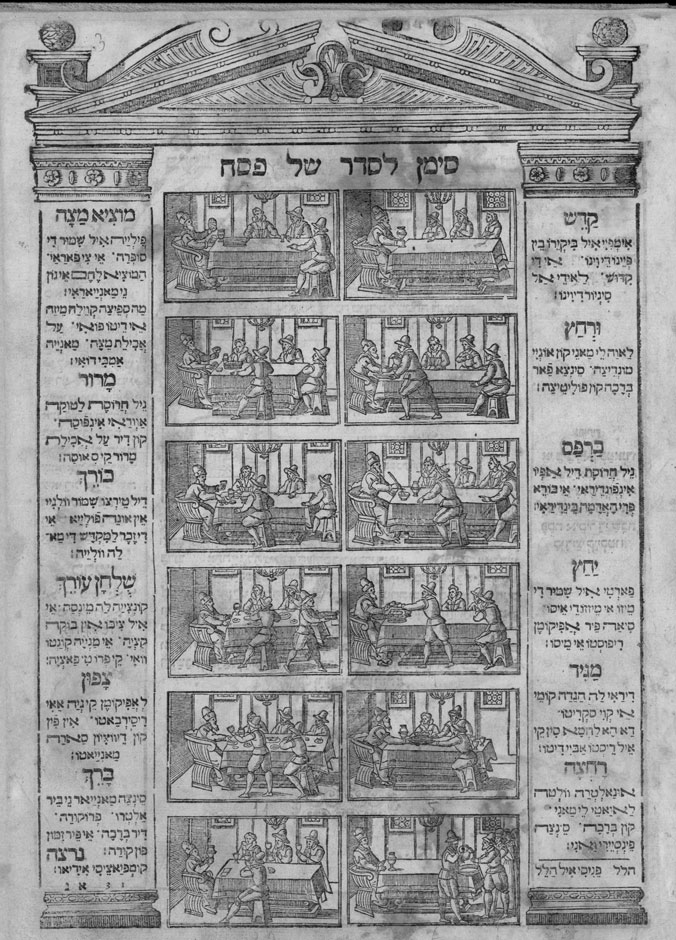 סימן לסדר של פסח
קַדֵּשׁ
אימפייא איל ביקירו בין
פיינו די וינו אי די
קדוש לאודי אל
סיניור דיוינו:
וּרְחַץ
לאוה לי מאני קון אונייי
מונדיצה סינצא פאר
ברכה קון פוליטיצה:
כַּרְפַּס
ניל חרוסת דיל אפיו
אינפונדיראי אי בורא
פרי האדמה בינדיראי:
יַחַץ
פארטי איל שמור די
מיזו אי מיזודי איסו
סיאה פיר אפיקומן
ריפוסטו אי מיסו:
מַגִּיד
דיראי לה הגדה קומי
אי קוי סקריטו
דא הא לחמא סין קי
איל ריסטו אביי דיטו:
רָחְצָה
אינאלטרה וולטה
לאואטי לי מאני
קון ברכה סינצה
פינסיירי ואני:
הלל פניסי איל הלל
מוציא מצה
פילייה איל שמור די
סופרה אי צי פאראי
המוציא לחם אינון
ני מאנייראי:
מה ספיצה קוילה מיזה
אי דיטו פואי על
אכילת מצה מאנייה
אמבידואי:
מָרוֹר
ניל חרוסת לטוקה
אוראי אינפוסה
קון דיר על אכילת
מרור קי סאוסה:
כּוֹרֵךְ
דיל טירצו שמור וולייי
אין אונה פולייא אי
די זכר למקדש די מא־
לה וולייה:
שֻׁלְחָן עוֹרֵךְ
קונצייה לה מינסה אי
איל ציבו אין בוקה
קצייה אי מנייה קונטו
וואי קי פרוטי פאצייה:
צָפוּן
לאפיקומן קינייה אאי
ריסירבאטו אין פין
קון דיווציון סארה
מאנייאטו:
בָּרֵךְ
סינצה מאנייאר ני ביר
אלטרו פרוקורה
דיר ברכה אי פירזמון
פון קורה: נרצה
קומפיאציסי אידיאו: